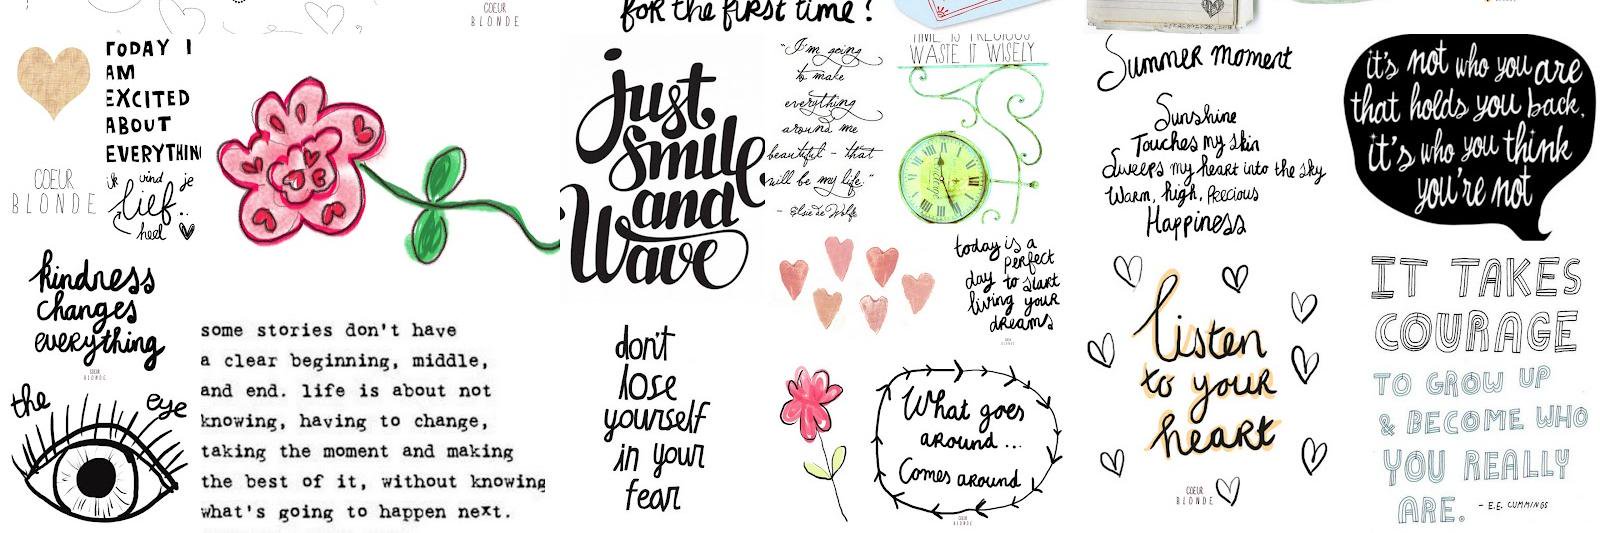 COEUR
BLONDE
for the first time?
TODAY I
AM
EXCITED
ABOUT
EVERYTHIN
ik vind je
lief..
heel
COEUR
BLONDE
kindness
changes
everything
COEUR
BLONDE
the eye
some stories don't have
a clear beginning, middle,
and end. life is about not
knowing, having to change,
taking the moment and making
the best of it, without knowing
what's going to happen next.
just
smile
and
Wave
"I'm going
to make
everything
around me
beautiful - that
will be my life."
- Elsie de Wolfe
TIME IS PRECIOUS
WASTE IT WISELY
today is a
perfect
day to start
living your
dreams
don't
lose
yourself
in your
fear
What goes
around...
Comes around
COEUR
BLONDE
Summer moment
Sunshine
Touches my skin
Sweeps my heart into the sky
Warm, high, Precious
Happiness
listen
to your
heart
COEUR
BLONDE
it's not who you are
that holds you back,
it's who you think
you're not
IT TAKES
COURAGE
TO GROW UP
& BECOME WHO
YOU REALLY
ARE.
- E.E. CUMMINGS